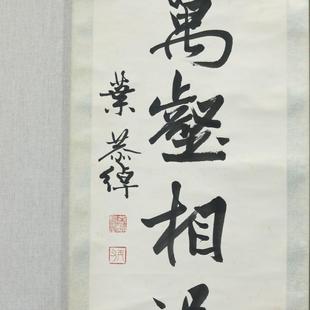 萬壑相
葉恭綽